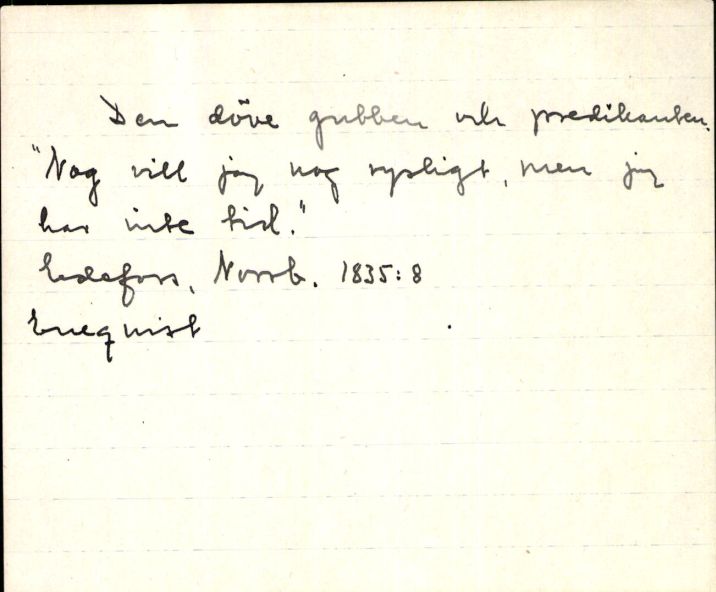 Den döve gubben och predikanten.
"Nog vill jag nog rysligt, men jag
har inte tid."
Edefors, Norrb. 1835:8
Enequist